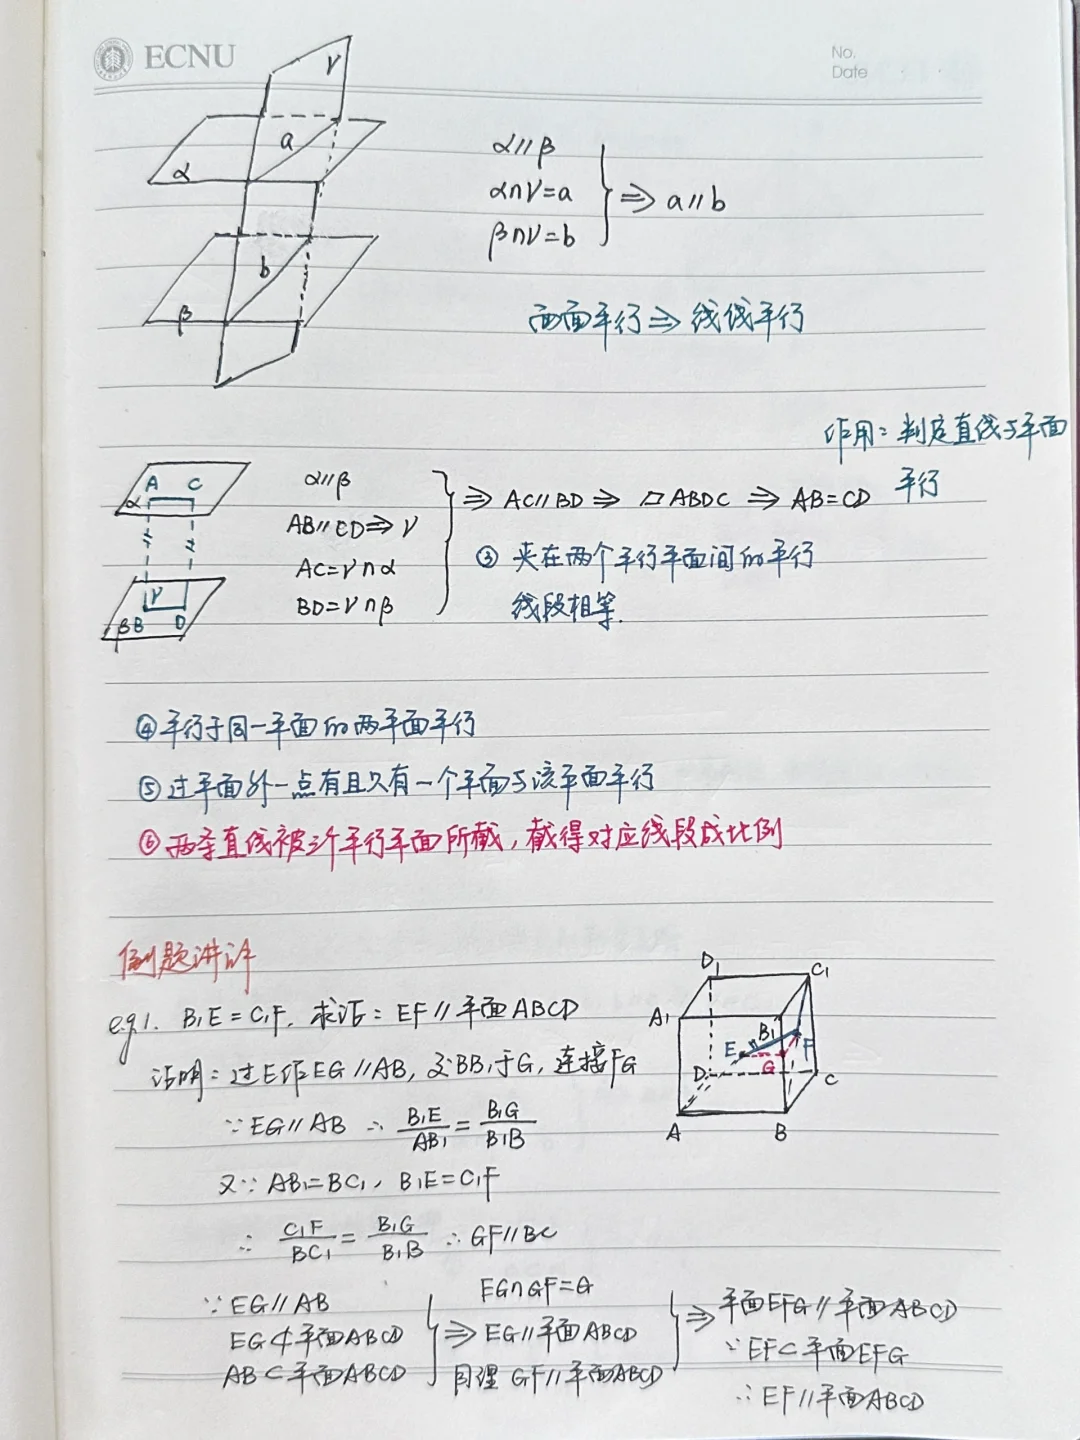 ECNU
No.
Date
γ
a
α
α∥β
α∩γ=a
β∩γ=b
⇒ a∥b
b
β
面面平行⇒线线平行
作用：判定直线与平面
平行
A C
α
γ
βB D
α∥β
AB∥CD⇒γ
AC=γ∩α
BD=γ∩β
⇒ AC∥BD ⇒ ▱ABDC ⇒ AB=CD
③ 夹在两个平行平面间的平行
线段相等.
④平行于同一平面的两平面平行
⑤过平面外一点有且只有一个平面与该平面平行
⑥两条直线被三个平行平面所截，截得对应线段成比例
例题讲评
e.g.1. B₁E=C₁F. 求证：EF∥平面ABCD
证明：过E作EG∥AB，交BB₁于G，连接FG
∵EG∥AB ∴ B₁E/AB₁ = B₁G/B₁B
又∵AB₁=BC₁，B₁E=C₁F
∴ C₁F/BC₁ = B₁G/B₁B ∴GF∥BC
∵EG∥AB
EG⊄平面ABCD
AB⊂平面ABCD
EG∩GF=G
⇒ EG∥平面ABCD
同理 GF∥平面ABCD
⇒ 平面EFG∥平面ABCD
∵EF⊂平面EFG
∴EF∥平面ABCD
D₁ C₁
A₁ B₁
E F
G
D C
A B